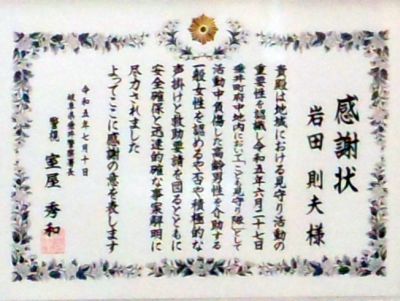 感謝状
岩田則夫様
貴殿は地域における見守り活動の
重要性を認識し令和五年六月二十七日
垂井町府中地内において「こども見守り隊」として
活動中負傷した高齢男性を介助する
一般女性を認めるや否や積極的な
声掛けと救助要請を図るとともに
安全確保と迅速的確な事案解明に
尽力されました
よってここに感謝の意を表します
令和五年七月十日
岐阜県垂井警察署長
警視 室屋秀和